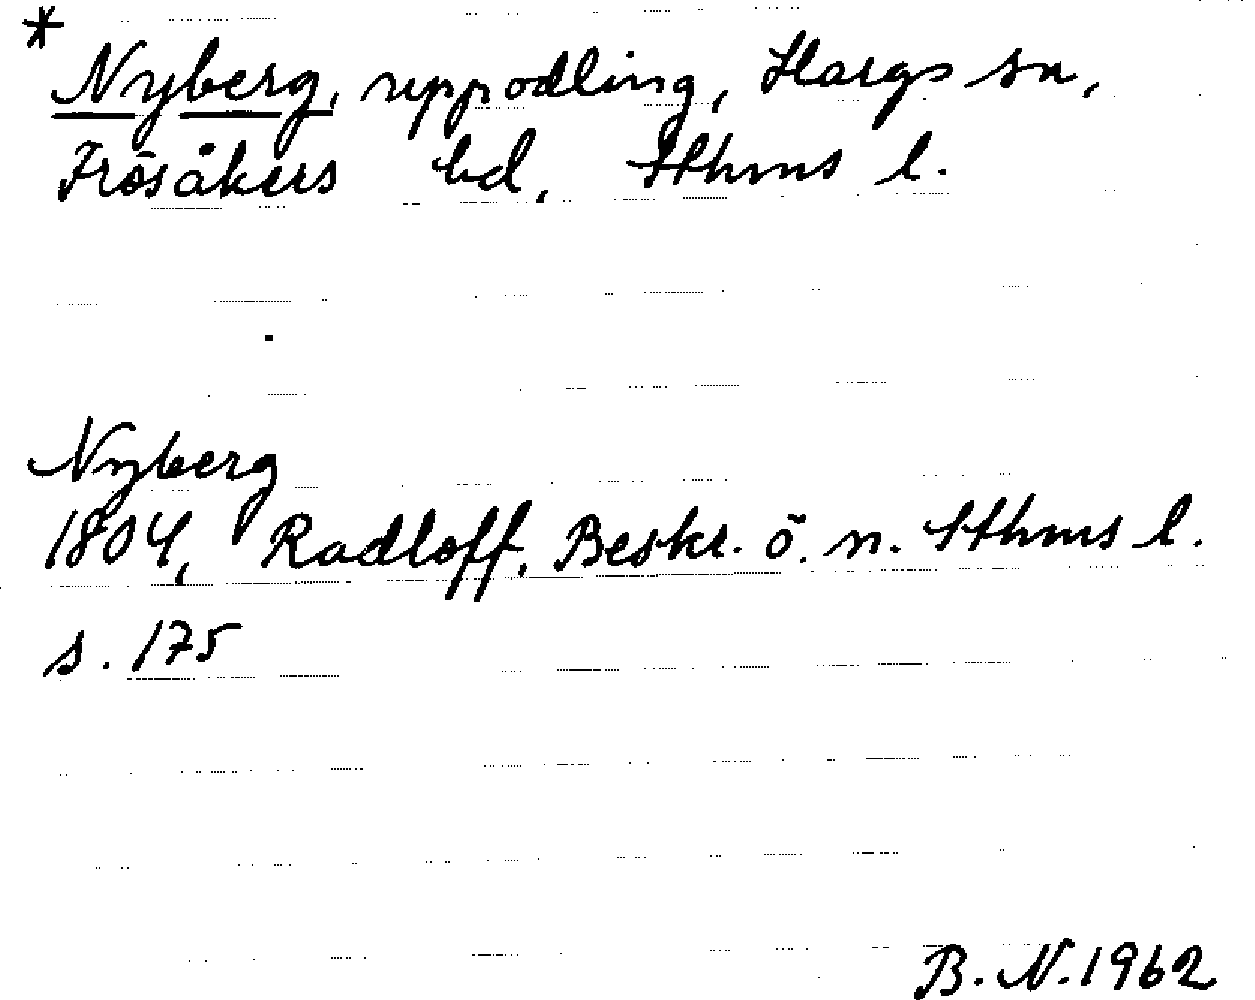 * Nyberg, uppodling, Hargs sn,
Frösåkers hd, Sthms l.
Nyberg
1804, Radloff, Beskr. ö. n. Sthms l.
s. 175
B. N. 1962